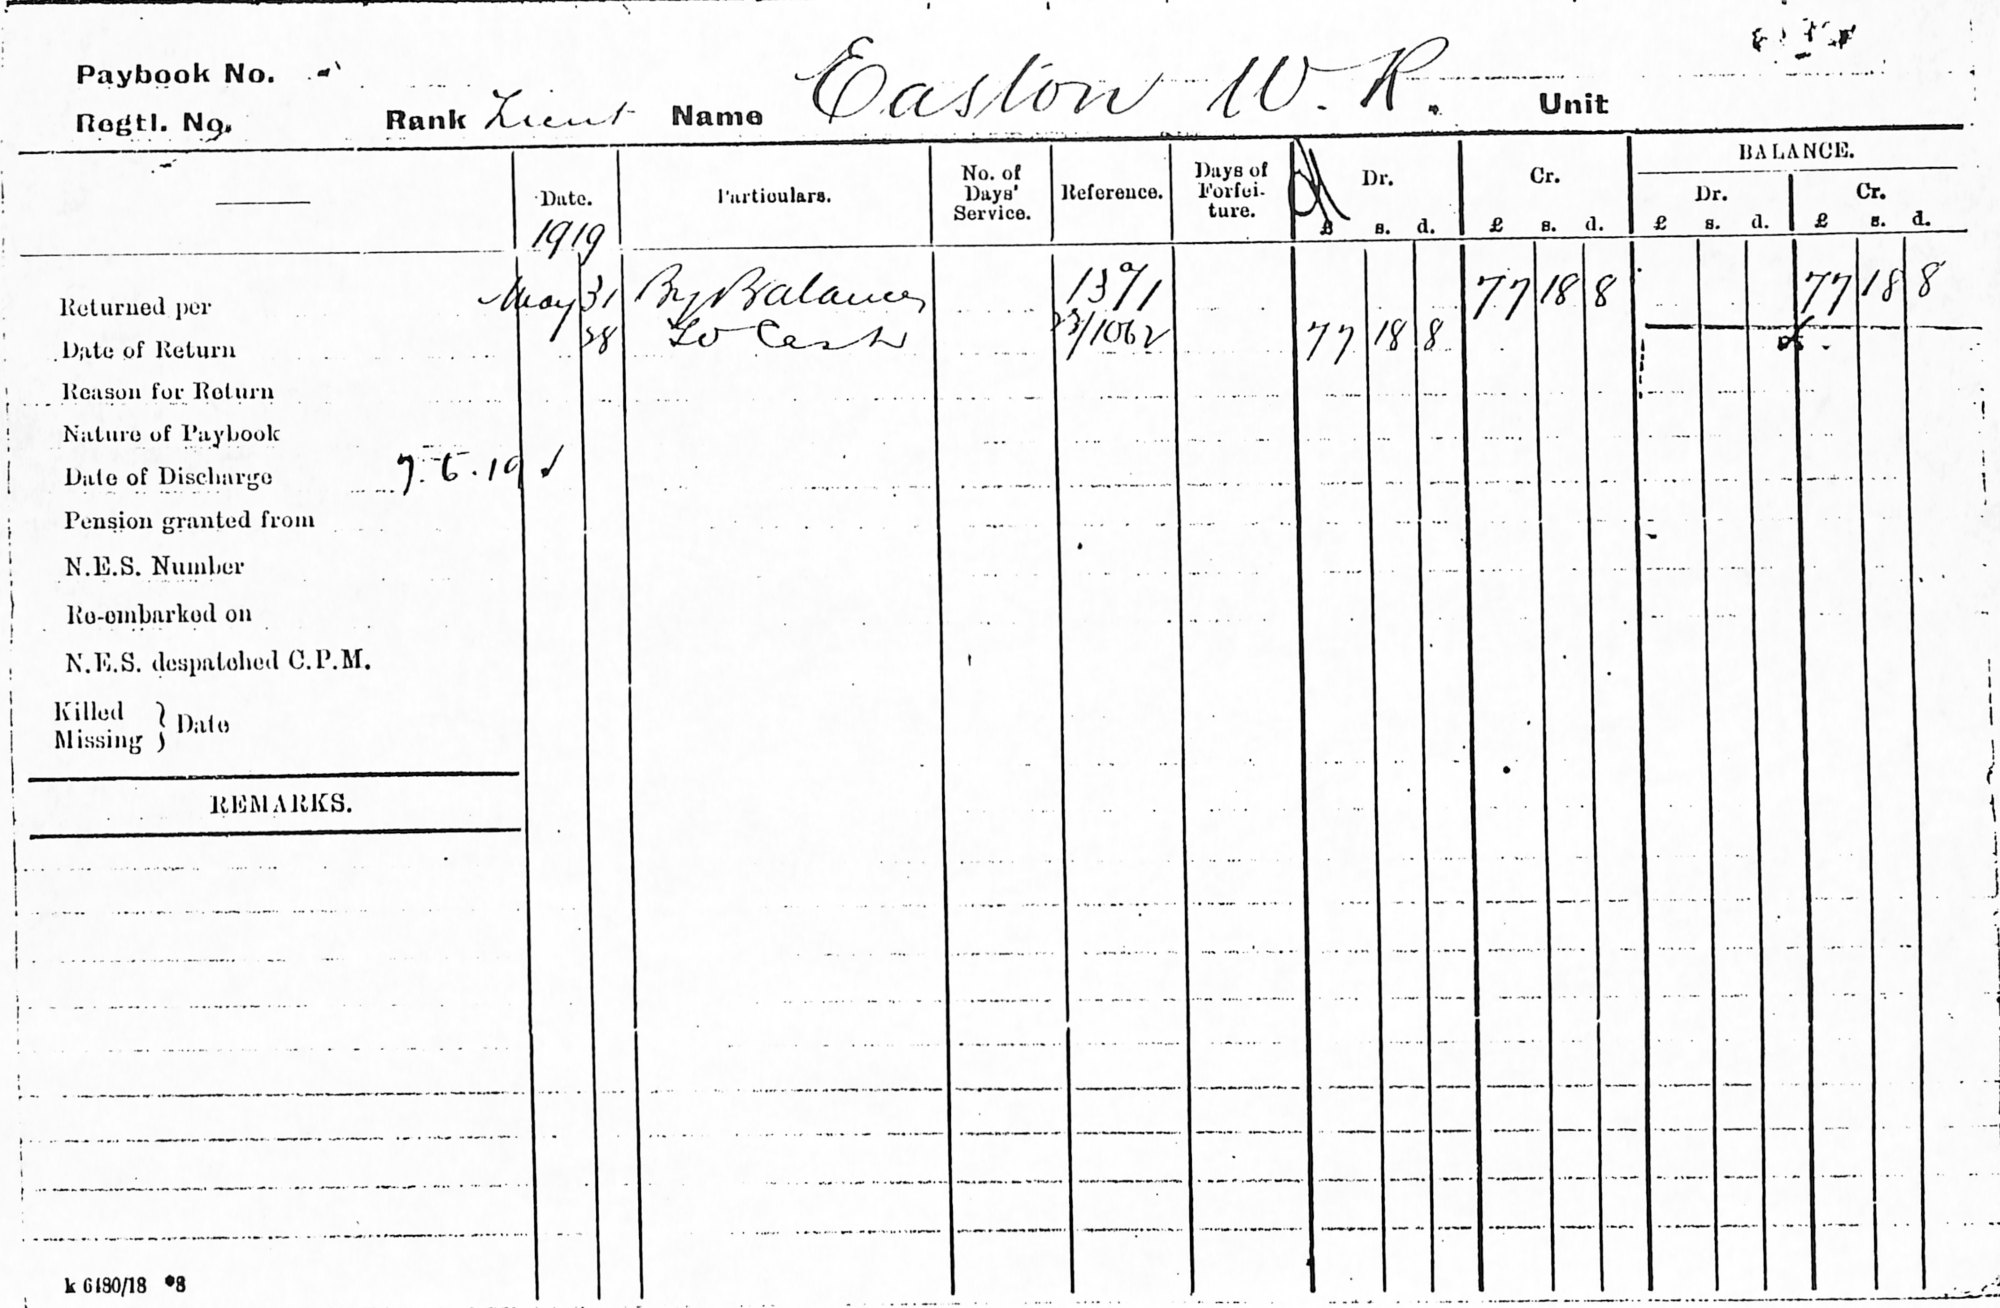 Paybook No.
Regtl. No. Rank Lieut Name Easton W. R. Unit
Date. Particulars. No. of Days' Service. Reference. Days of Forfei-ture. Dr. £ s. d. Cr. £ s. d. BALANCE. Dr. £ s. d. Cr. £ s. d.
1919
Returned per May 31 By Balance 77 18 8 77 18 8
Date of Return 28 To Cash 23/1062 77 18 8
Reason for Return
Nature of Paybook
Date of Discharge 7.5.19
Pension granted from
N.E.S. Number
Re-embarked on
N.E.S. despatched C.P.M.
Killed
Missing } Date
REMARKS.
k 6480/18 *8